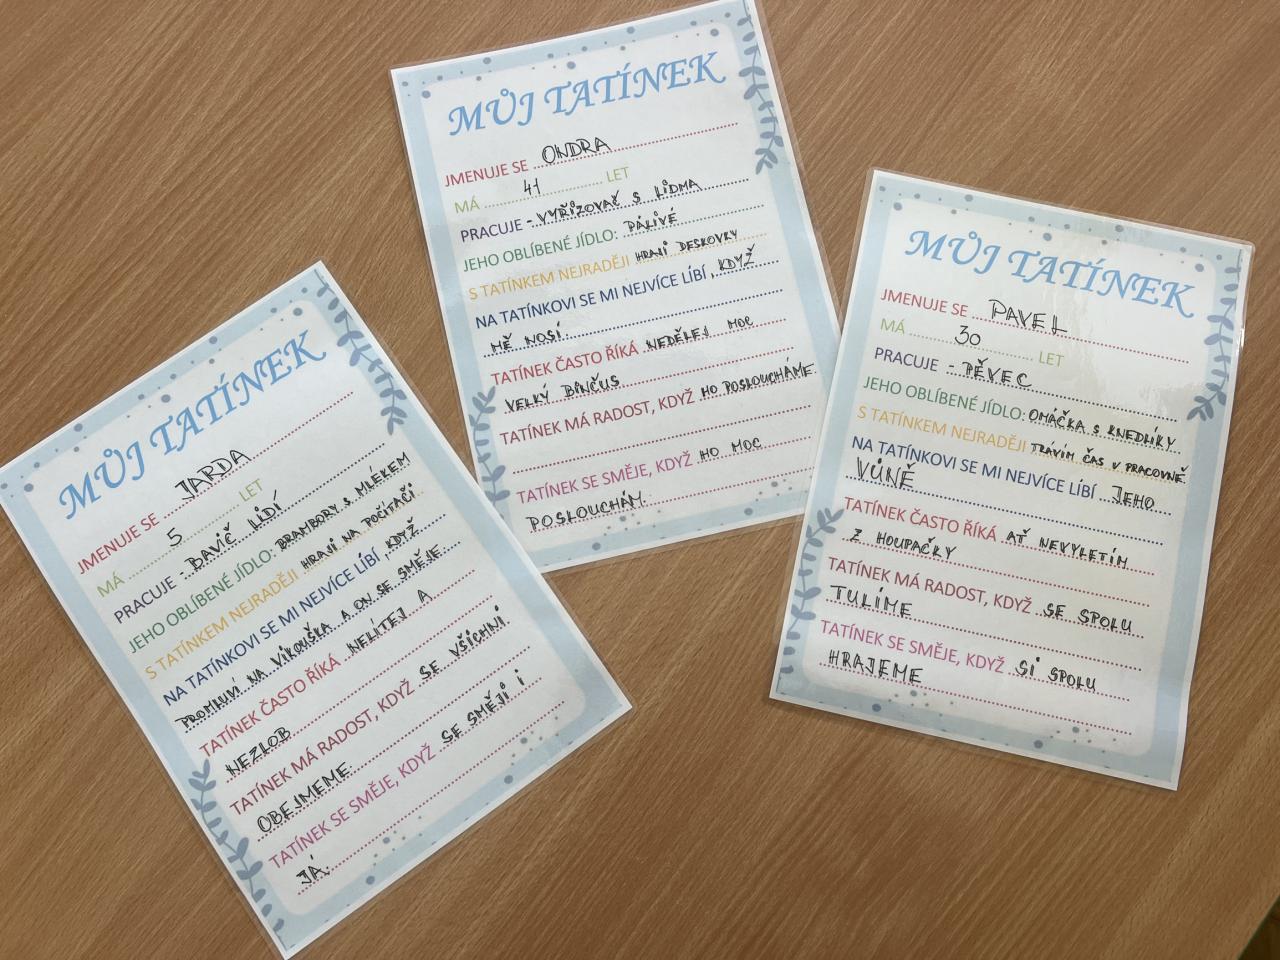 MŮJ TATÍNEK
JMENUJE SE JARDA
MÁ 5 LET
PRACUJE - BAVIČ LIDÍ
JEHO OBLÍBENÉ JÍDLO: BRAMBORY S MLÉKEM
S TATÍNKEM NEJRADĚJI HRAJI NA POČÍTAČI
NA TATÍNKOVI SE MI NEJVÍCE LÍBÍ, KDYŽ
PROMLUVÍ NA VIKOUŠKA A ON SE SMĚJE
TATÍNEK ČASTO ŘÍKÁ NELÍTEJ A
NEZLOB
TATÍNEK MÁ RADOST, KDYŽ SE VŠICHNI
OBEJMEME.
TATÍNEK SE SMĚJE, KDYŽ SE SMĚJI I
JÁ.
MŮJ TATÍNEK
JMENUJE SE ONDRA
MÁ 41 LET
PRACUJE - VYŘIZOVAČ S LIDMA
JEHO OBLÍBENÉ JÍDLO: PÁLIVÉ
S TATÍNKEM NEJRADĚJI HRAJI DESKOVKY
NA TATÍNKOVI SE MI NEJVÍCE LÍBÍ, KDYŽ
MĚ NOSÍ
TATÍNEK ČASTO ŘÍKÁ NEDĚLEJ MOC
VELKÝ BINČUS
TATÍNEK MÁ RADOST, KDYŽ HO POSLOUCHÁME
TATÍNEK SE SMĚJE, KDYŽ HO MOC
POSLOUCHÁM.
MŮJ TATÍNEK
JMENUJE SE PAVEL
MÁ 30 LET
PRACUJE - PĚVEC
JEHO OBLÍBENÉ JÍDLO: OMÁČKA S KNEDLÍKY
S TATÍNKEM NEJRADĚJI TRÁVIM ČAS V PRACOVNĚ
NA TATÍNKOVI SE MI NEJVÍCE LÍBÍ JEHO
VŮNĚ
TATÍNEK ČASTO ŘÍKÁ AŤ NEVYLETÍM
Z HOUPAČKY
TATÍNEK MÁ RADOST, KDYŽ SE SPOLU
TULÍME
TATÍNEK SE SMĚJE, KDYŽ SI SPOLU
HRAJEME